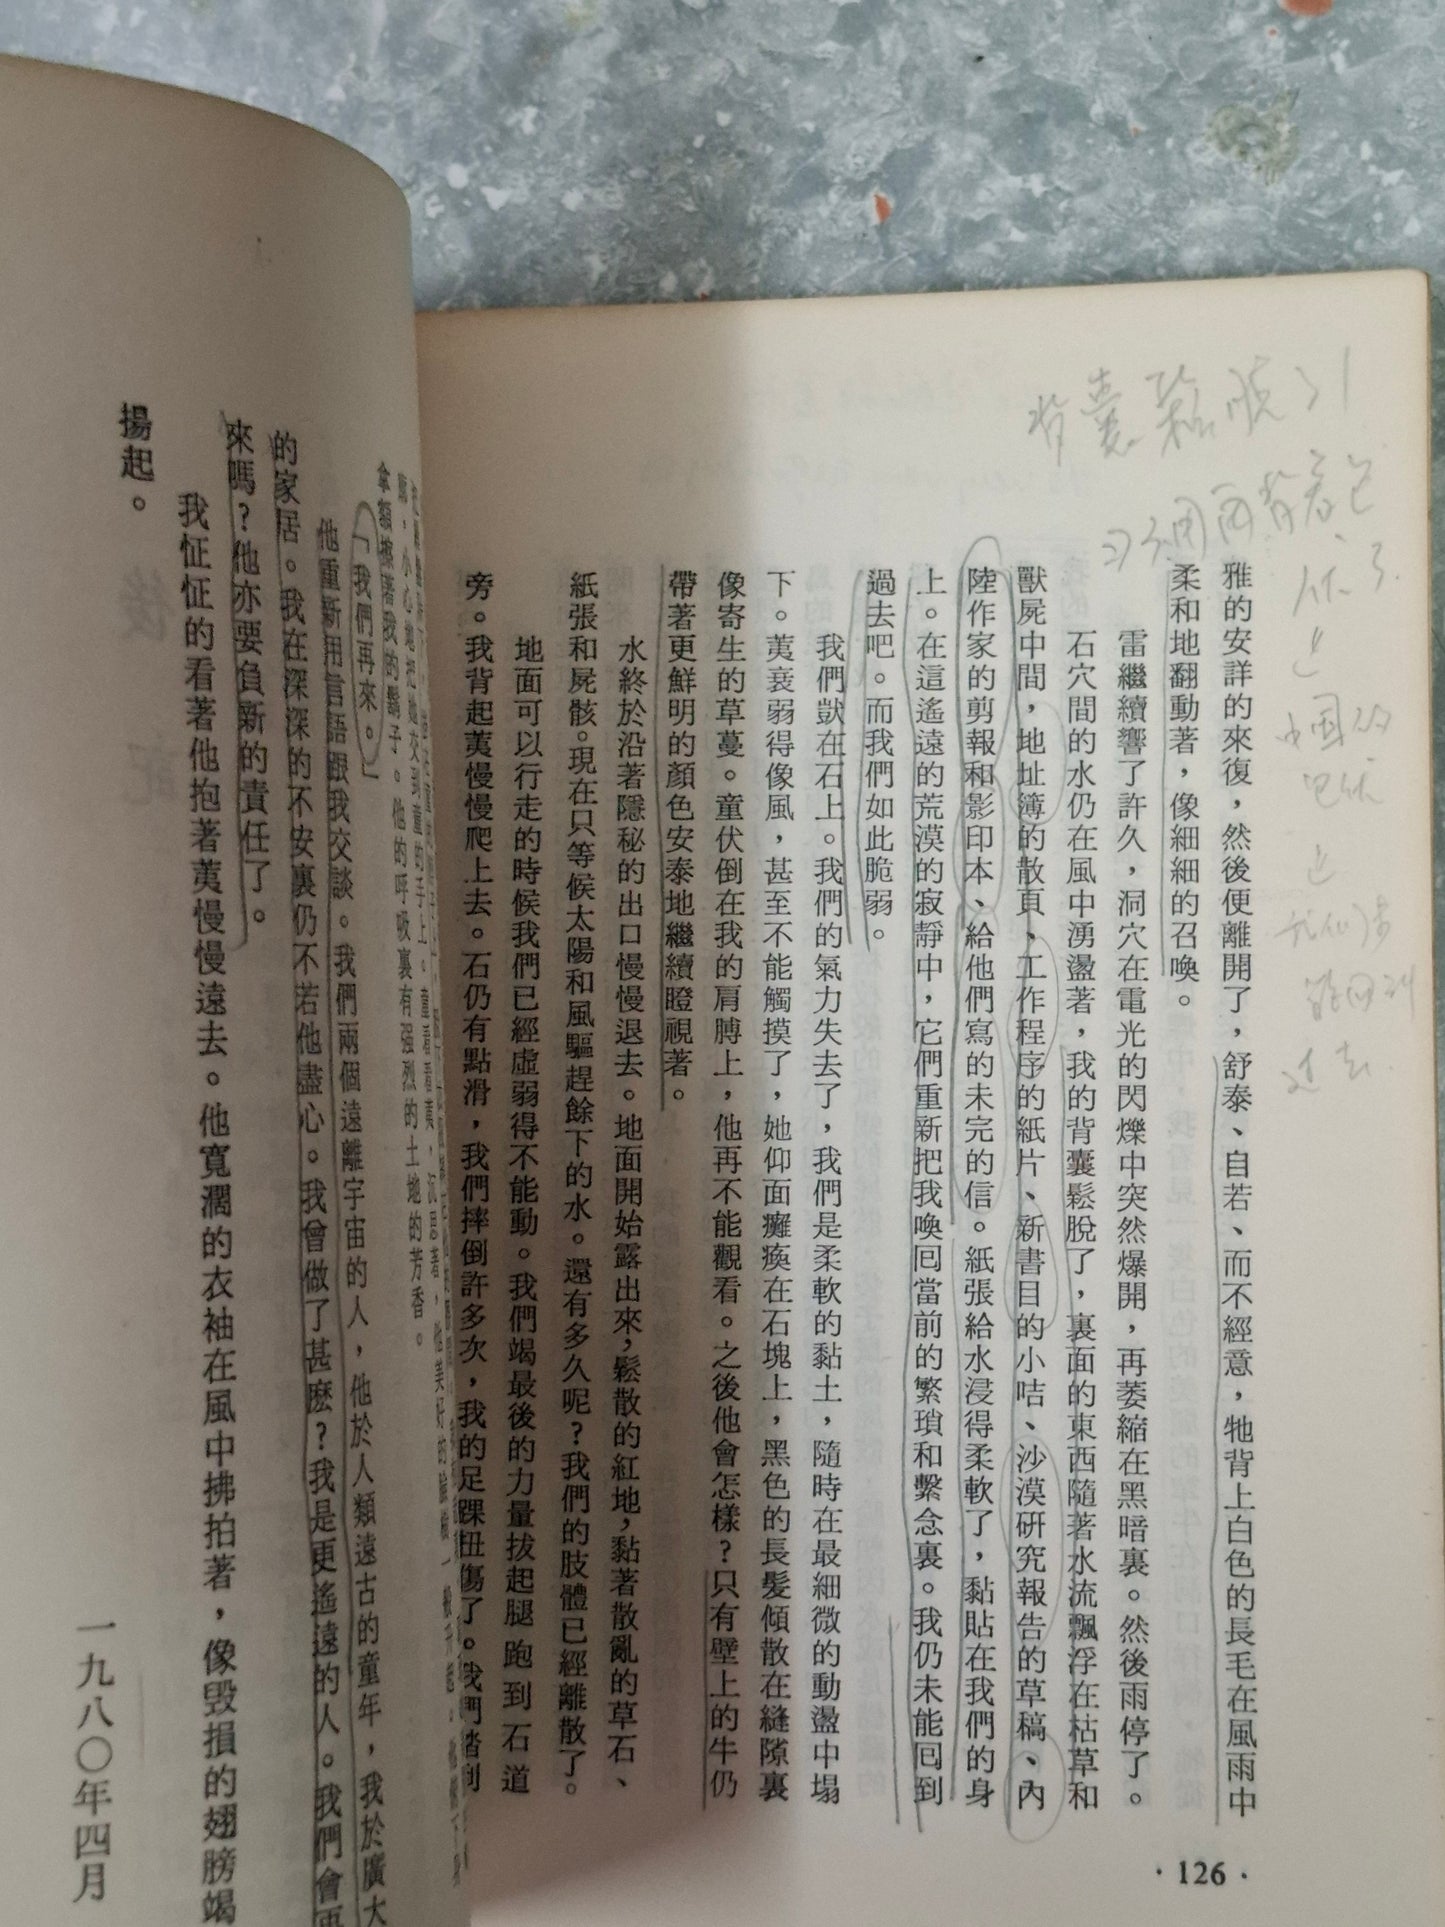 背囊鬆脫了！
雅的安詳的來復，然後便離開了，舒泰、自若、而不經意，牠背上白色的長毛在風雨中
柔和地翻動著，像細細的召喚。
雷繼續響了許久，洞穴在電光的閃爍中突然爆開，再萎縮在黑暗裏。然後雨停了。
石穴間的水仍在風中湧盪著，我的背囊鬆脫了，裏面的東西隨著水流飄浮在枯草和
獸屍中間，地址簿的散頁、工作程序的紙片、新書目的小咭、沙漠研究報告的草稿、內
陸作家的剪報和影印本、給他們寫的未完的信。紙張給水浸得柔軟了，黏貼在我們的身
上。在這遙遠的荒漠的寂靜中，它們重新把我喚回當前的繁瑣和繫念裏。我仍未能回到
過去吧。而我們如此脆弱。
我們獃在石上。我們的氣力失去了，我們是柔軟的黏土，隨時在最細微的動盪中塌
下。荑衰弱得像風，甚至不能觸摸了，她仰面癱瘓在石塊上，黑色的長髮傾散在縫隙裏
像寄生的草蔓。童伏倒在我的肩膊上，他再不能觀看。之後他會怎樣？只有壁上的牛仍
帶著更鮮明的顏色安泰地繼續瞪視著。
水終於沿著隱秘的出口慢慢退去。地面開始露出來，鬆散的紅地，黏著散亂的草石、
紙張和屍骸。現在只等候太陽和風驅趕餘下的水。還有多久呢？我們的肢體已經離散了。
地面可以行走的時候我們已經虛弱得不能動。我們竭最後的力量拔起腿跑到石道
旁。我背起荑慢慢爬上去。石仍有點滑，我們摔倒許多次，我的足踝扭傷了。我們踏到
· 126 ·
，小心地把她交到童的手上。童看看荑，沉思著，他美好的
拿額擦著我的鬍子。他的呼吸裏有强烈的土地的芳香。
「我們再來。」
他重新用言語跟我交談。我們兩個遠離宇宙的人，他於人類遠古的童年，我於廣大
的家居。我在深深的不安裏仍不若他盡心。我曾做了甚麽？我是更遙遠的人。我們會再
來嗎？他亦要負新的責任了。
我怔怔的看著他抱著荑慢慢遠去。他寬濶的衣袖在風中拂拍著，像毀損的翅膀竭
揚起。
一九八〇年四月